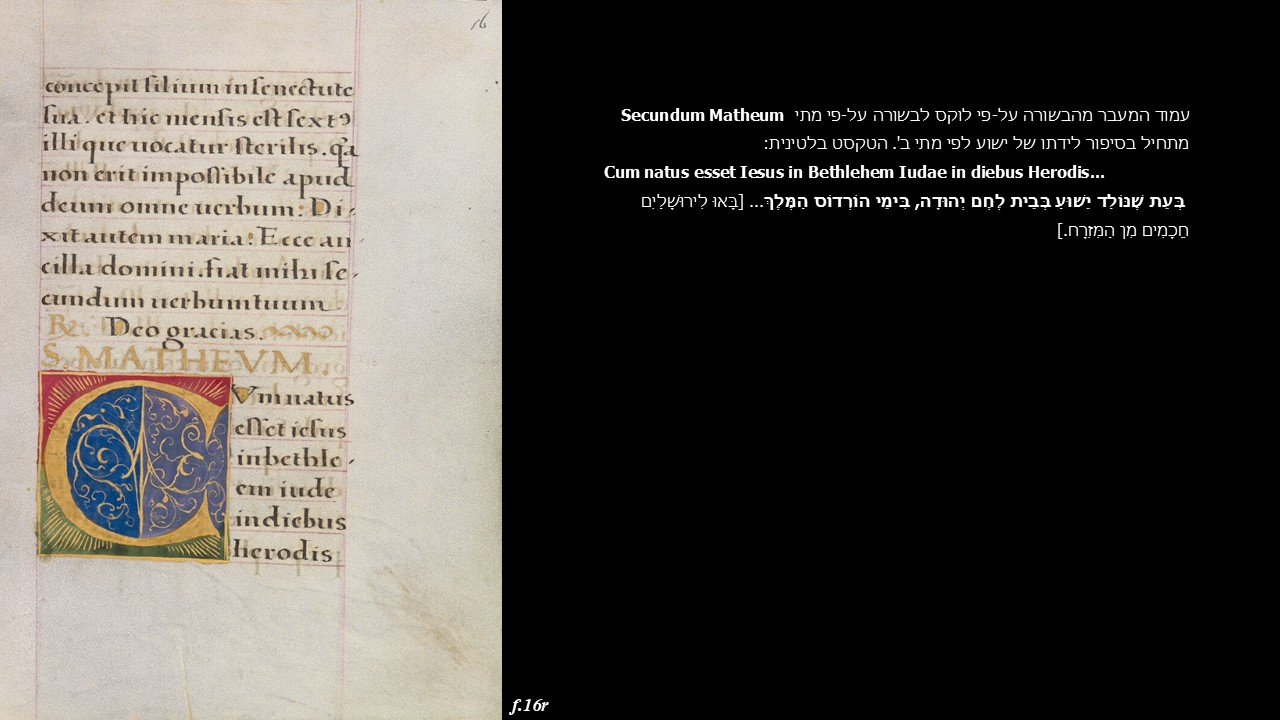 16
concepit filium in senectute
sua. et hic mensis est sextꝯ
illi que uocatur sterilis. qa
non erit impossibile apud
deum omne uerbum: Di-
xit autem maria: Ecce an
cilla domini. fiat mihi se-
cundum uerbum tuum
Deo gracias.
S. MATHEVM.
CVm natus
esset iesus
in bethle-
em iude
in diebus
herodis
עמוד המעבר מהבשורה על-פי לוקס לבשורה על-פי מתי Secundum Matheum
מתחיל בסיפור לידתו של ישוע לפי מתי ב'. הטקסט בלטינית:
Cum natus esset Iesus in Bethlehem Iudae in diebus Herodis...
בְּעֵת שֶׁנּוֹלַד יֵשׁוּעַ בְּבֵית לֶחֶם יְהוּדָה, בִּימֵי הוֹרְדוֹס הַמֶּלֶךְ... [בָּאוּ לִירוּשָׁלַיִם
חֲכָמִים מִן הַמִּזְרָח.]
f.16r